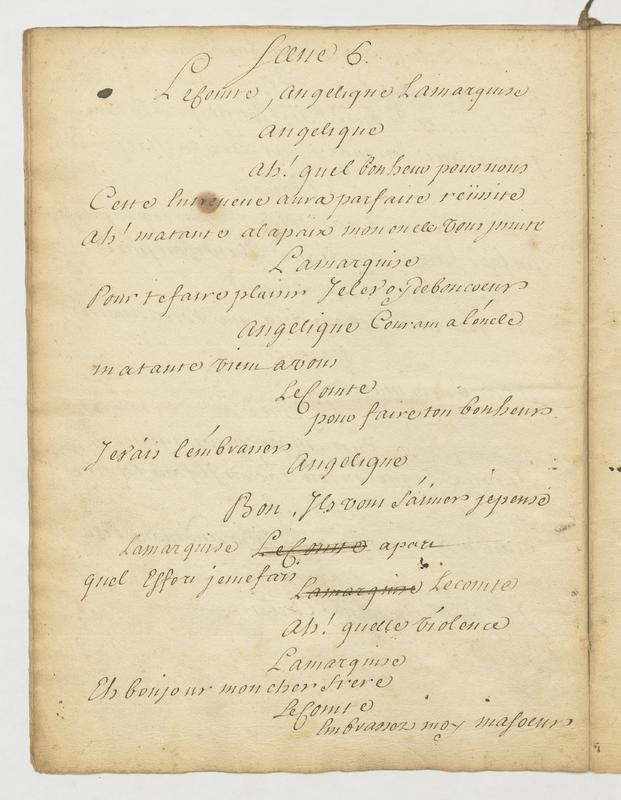 Scene 6.
Le Comte, Angelique Lamarquise
Angelique
Ah! quel bonheur pour nous
Cette Entreveue aura parfaite reüssite
Ah! matante alapaix mononcle vous invite
Lamarquise
Pour te faire plaisir Je le roy deboncoeur
Angelique Courant a l'oncle
matante vient avous
Le Comte
pour faire ton bonheur
Je vais l'embrasser
Angelique
Bon, Ils vont s'aimer jepense
Lamarquise Le Comte apart
quel Effort jemefais
Lamarquise Lecomte
Ah! quelle violence
Lamarquise
Eh bonjour mon cher frere
Le Comte
Embrassez moy masoeur